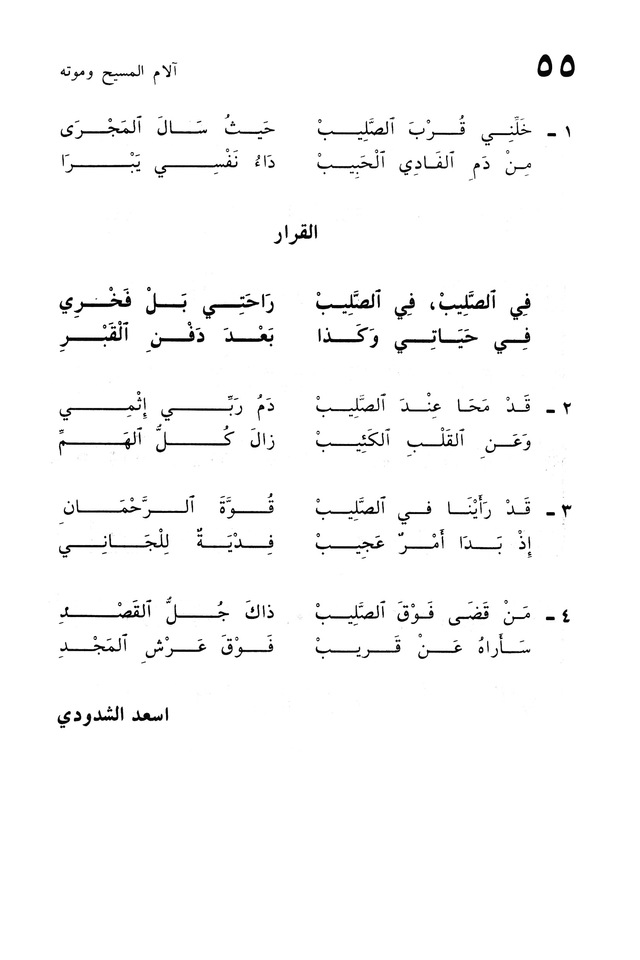 ٥٥
آلام المسيح وموته
١ - خَلِّنِي قُرْبَ ٱلصَّلِيبْ حَيثُ سَالَ ٱلمَجْرَى
مِنْ دَمِ ٱلفَادِي ٱلْحَبِيبْ دَاءُ نَفْسِي يَبْرَا
القرار
فِي ٱلصَّلِيبْ، فِي ٱلصَّلِيبْ رَاحَتِي بَلْ فَخْرِي
فِي حَيَاتِي وَكَذَا بَعْدَ دَفْنِ ٱلْقَبْرِ
٢ - قَدْ مَحَا عِنْدَ ٱلصَّلِيبْ دَمُ رَبِّي إِثْمِي
وَعَنِ ٱلقَلْبِ ٱلكَئِيبْ زالَ كُلُّ ٱلهَمِّ
٣ - قَدْ رَأَيْنَا في ٱلصَّلِيبْ قُوَّةَ ٱلرَّحْمَانِ
إِذْ بَدَا أَمْرٌ عَجِيبْ فِدْيَةٌ لِلْجَانِي
٤ - مَنْ قَضَى فَوْقَ ٱلصَّلِيبْ ذاكَ جُلُّ ٱلقَصْدِ
سَأَراهُ عَنْ قَرِيبْ فَوْقَ عَرْشِ ٱلمَجْدِ
اسعد الشدودي